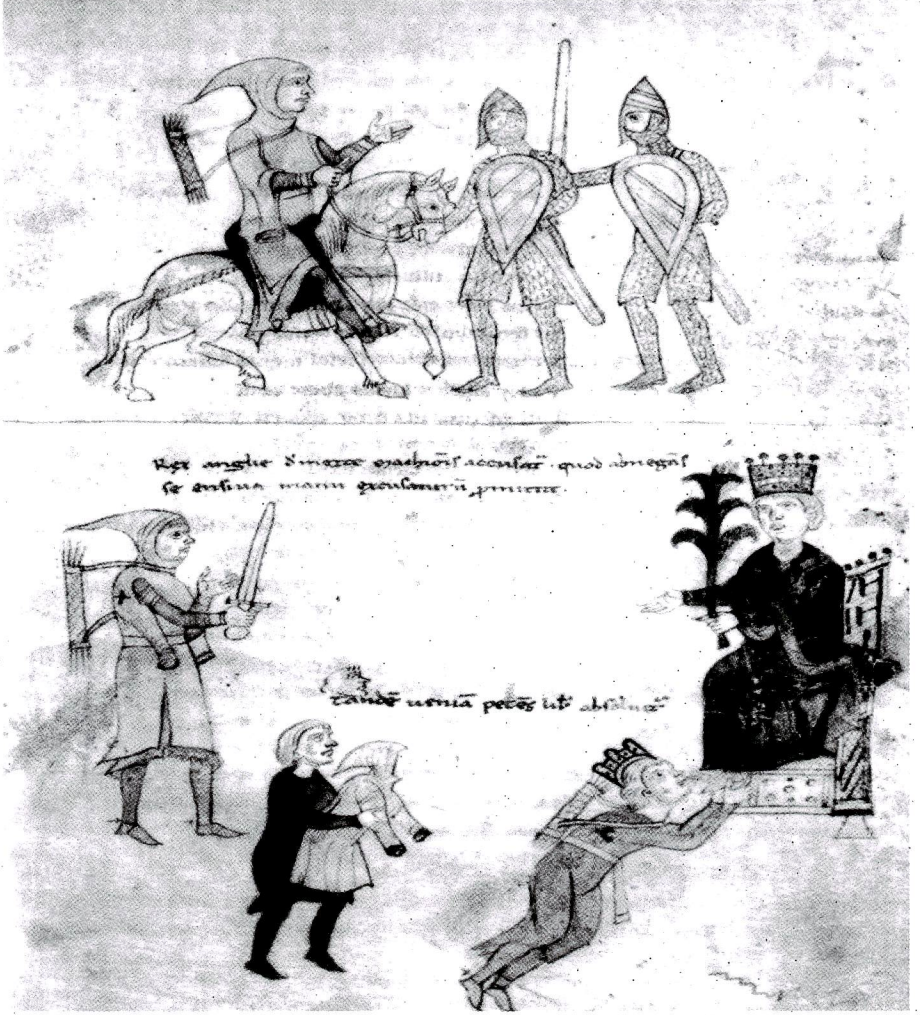 Rex anglie d' morte marchiõis accusat̃. quod abnegãs
se ensiua manu excusaturũ ꝓmittit.
tandẽ ueniã petẽs lib̃ absoluit̃